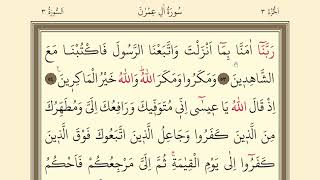 الجزء ٣ سورة اٰل عمرٰن السورة ٣
رَبَّنَٓا اٰمَنَّا بِمَٓا اَنْزَلْتَ وَاتَّبَعْنَا الرَّسُولَ فَاكْتُبْنَا مَعَ
الشَّاهِدٖينَ ﴿٥٣﴾ وَمَكَرُوا وَمَكَرَ اللّٰهُؕ وَاللّٰهُ خَيْرُ الْمَاكِرٖينَ ﴿٥٤﴾
اِذْ قَالَ اللّٰهُ يَا عٖيسٰٓى اِنّٖي مُتَوَفّٖيكَ وَرَافِعُكَ اِلَيَّ وَمُطَهِّرُكَ
مِنَ الَّذٖينَ كَفَرُوا وَجَاعِلُ الَّذٖينَ اتَّبَعُوكَ فَوْقَ الَّذٖينَ
كَفَرُٓوا اِلٰى يَوْمِ الْقِيٰمَةِۚ ثُمَّ اِلَيَّ مَرْجِعُكُمْ فَاَحْكُمُ